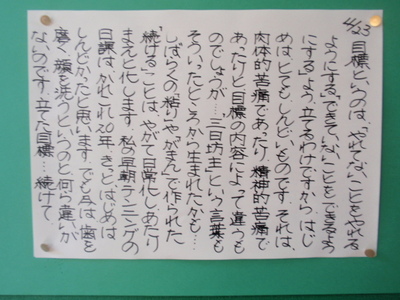 4/23
目標というのは、やれてないことをやれる
ようにする「できていないことをできるよう
にする」よう、立てるわけですから、はじ
めはとてもしんどいものです。それは、
肉体的苦痛であったり、精神的苦痛で
あったりと、目標の内容によって違うも
のでしょうが…。「三日坊主」という言葉も
そういったところから生まれたかも…。
しばらくの「粘り」や「がまん」で作られた
「続ける」ことは、やがて日常化しあたり
まえと化します。私の早朝ランニングの
日課は、かれこれ20年。きっと、はじめは
しんどかったと思います。でも今は、歯を
磨く、顔を洗うというのと何ら違いが
ないのです。立てた目標…続けて